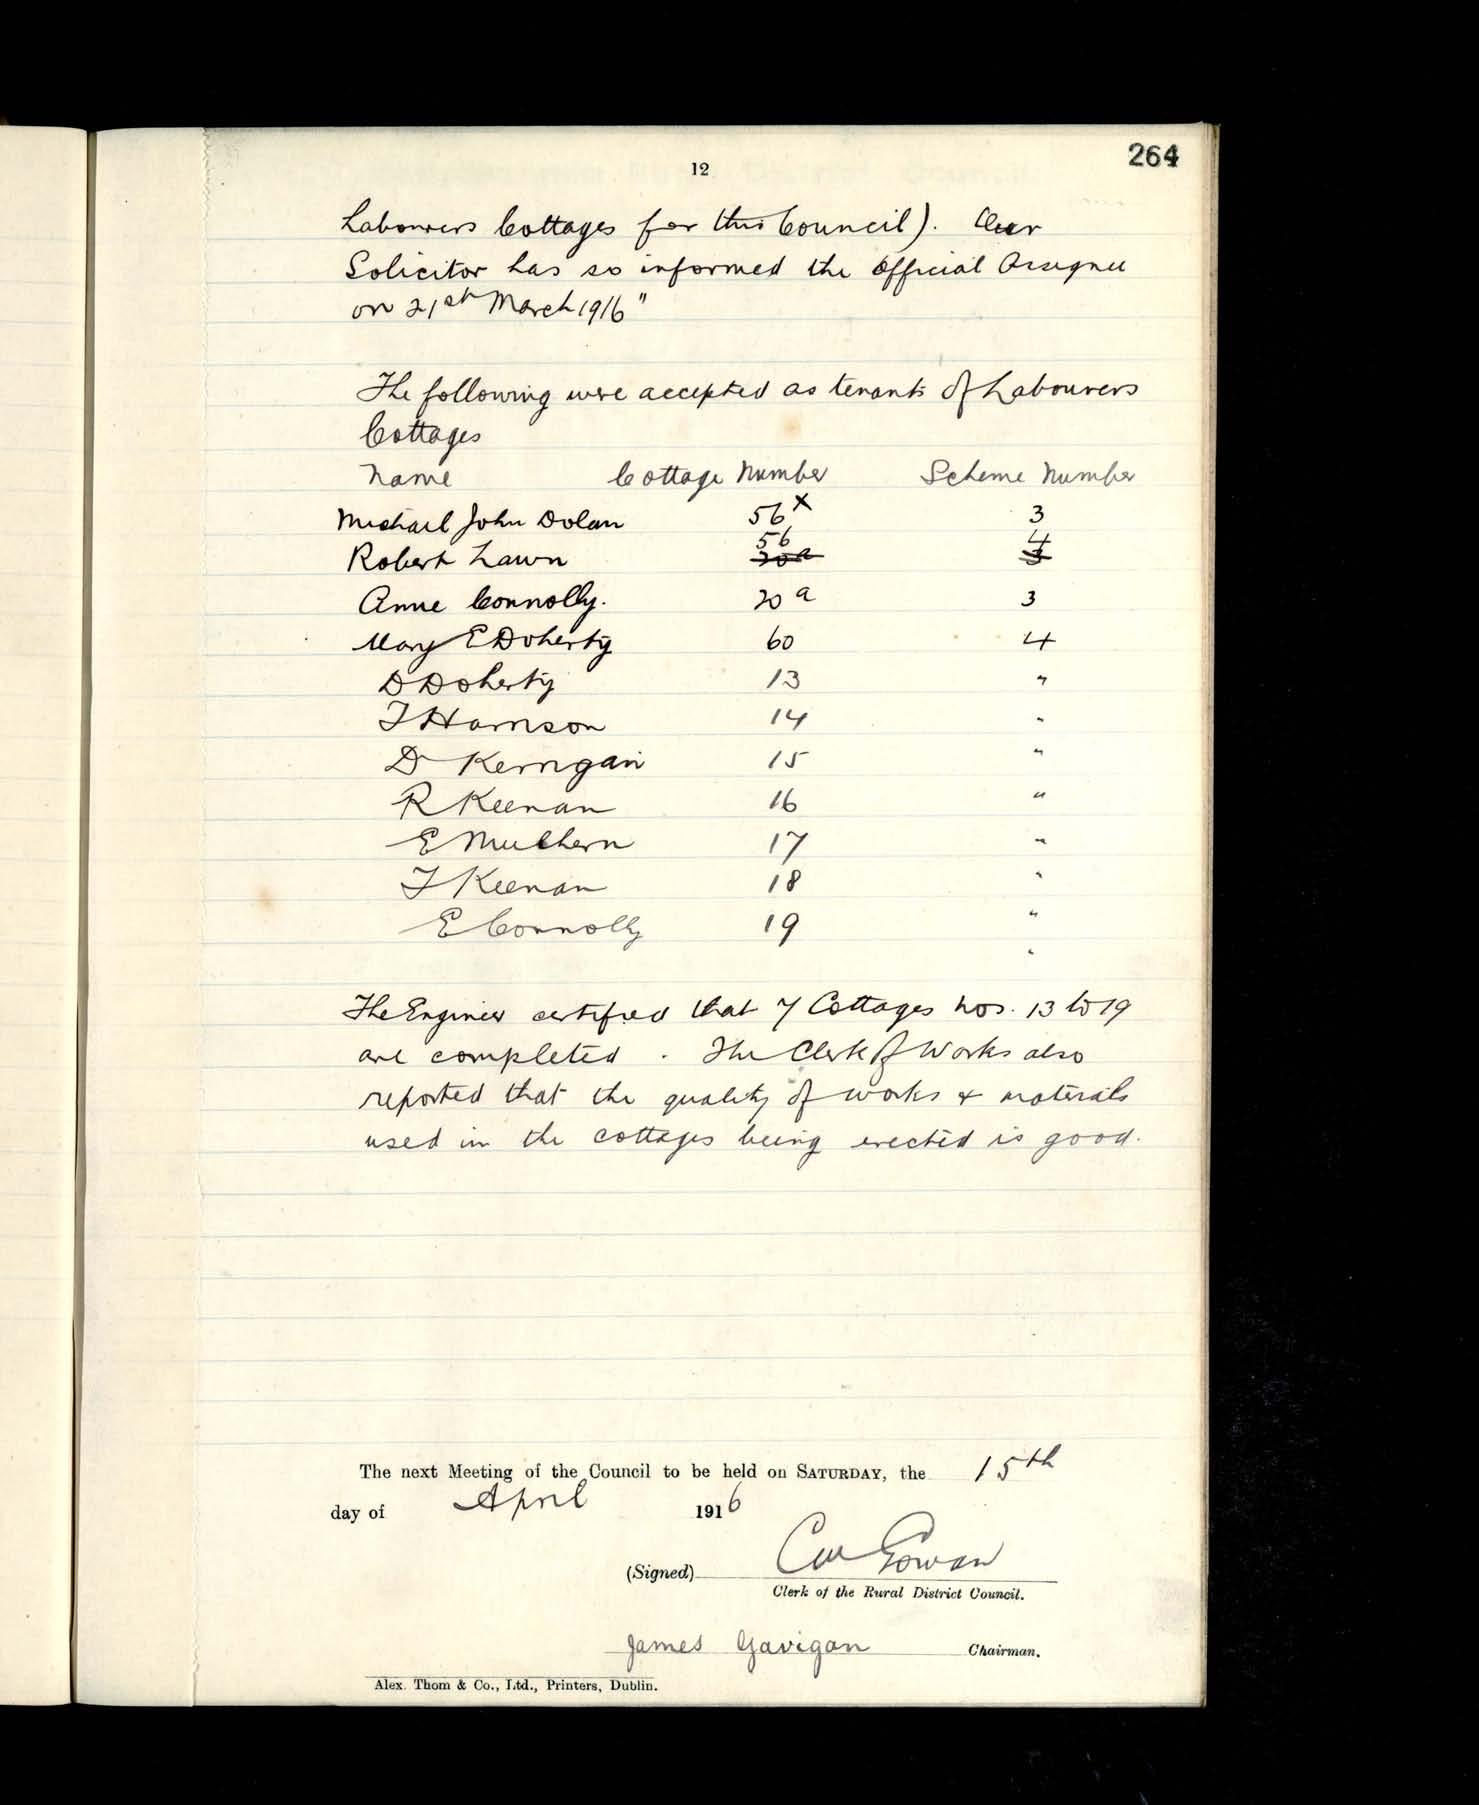 264
12
Labourers Cottages for this Council). Our
Solicitor has so informed the Official Assignee
on 21st March 1916"
The following were accepted as tenants of Labourers
Cottages
Name Cottage Number Scheme Number
Michael John Dolan 56x 3
Robert Lawn 56 4
20a 3
Anne Connolly. 20a 3
Mary E Doherty 60 4
D Doherty 13 "
T Harrison 14 "
D Kerrigan 15 "
R Keenan 16 "
E Mulhern 17 "
T Keenan 18 "
E Connolly 19 "
"
The Engineer certified that 7 Cottages Nos. 13 to 19
are completed. The Clerk of Works also
reported that the quality of works & materials
used in the cottages being erected is good.
The next Meeting of the Council to be held on SATURDAY, the 15th
day of April 1916
(Signed) Gowan
Clerk of the Rural District Council.
James Gavigan Chairman.
Alex. Thom & Co., Ltd., Printers, Dublin.